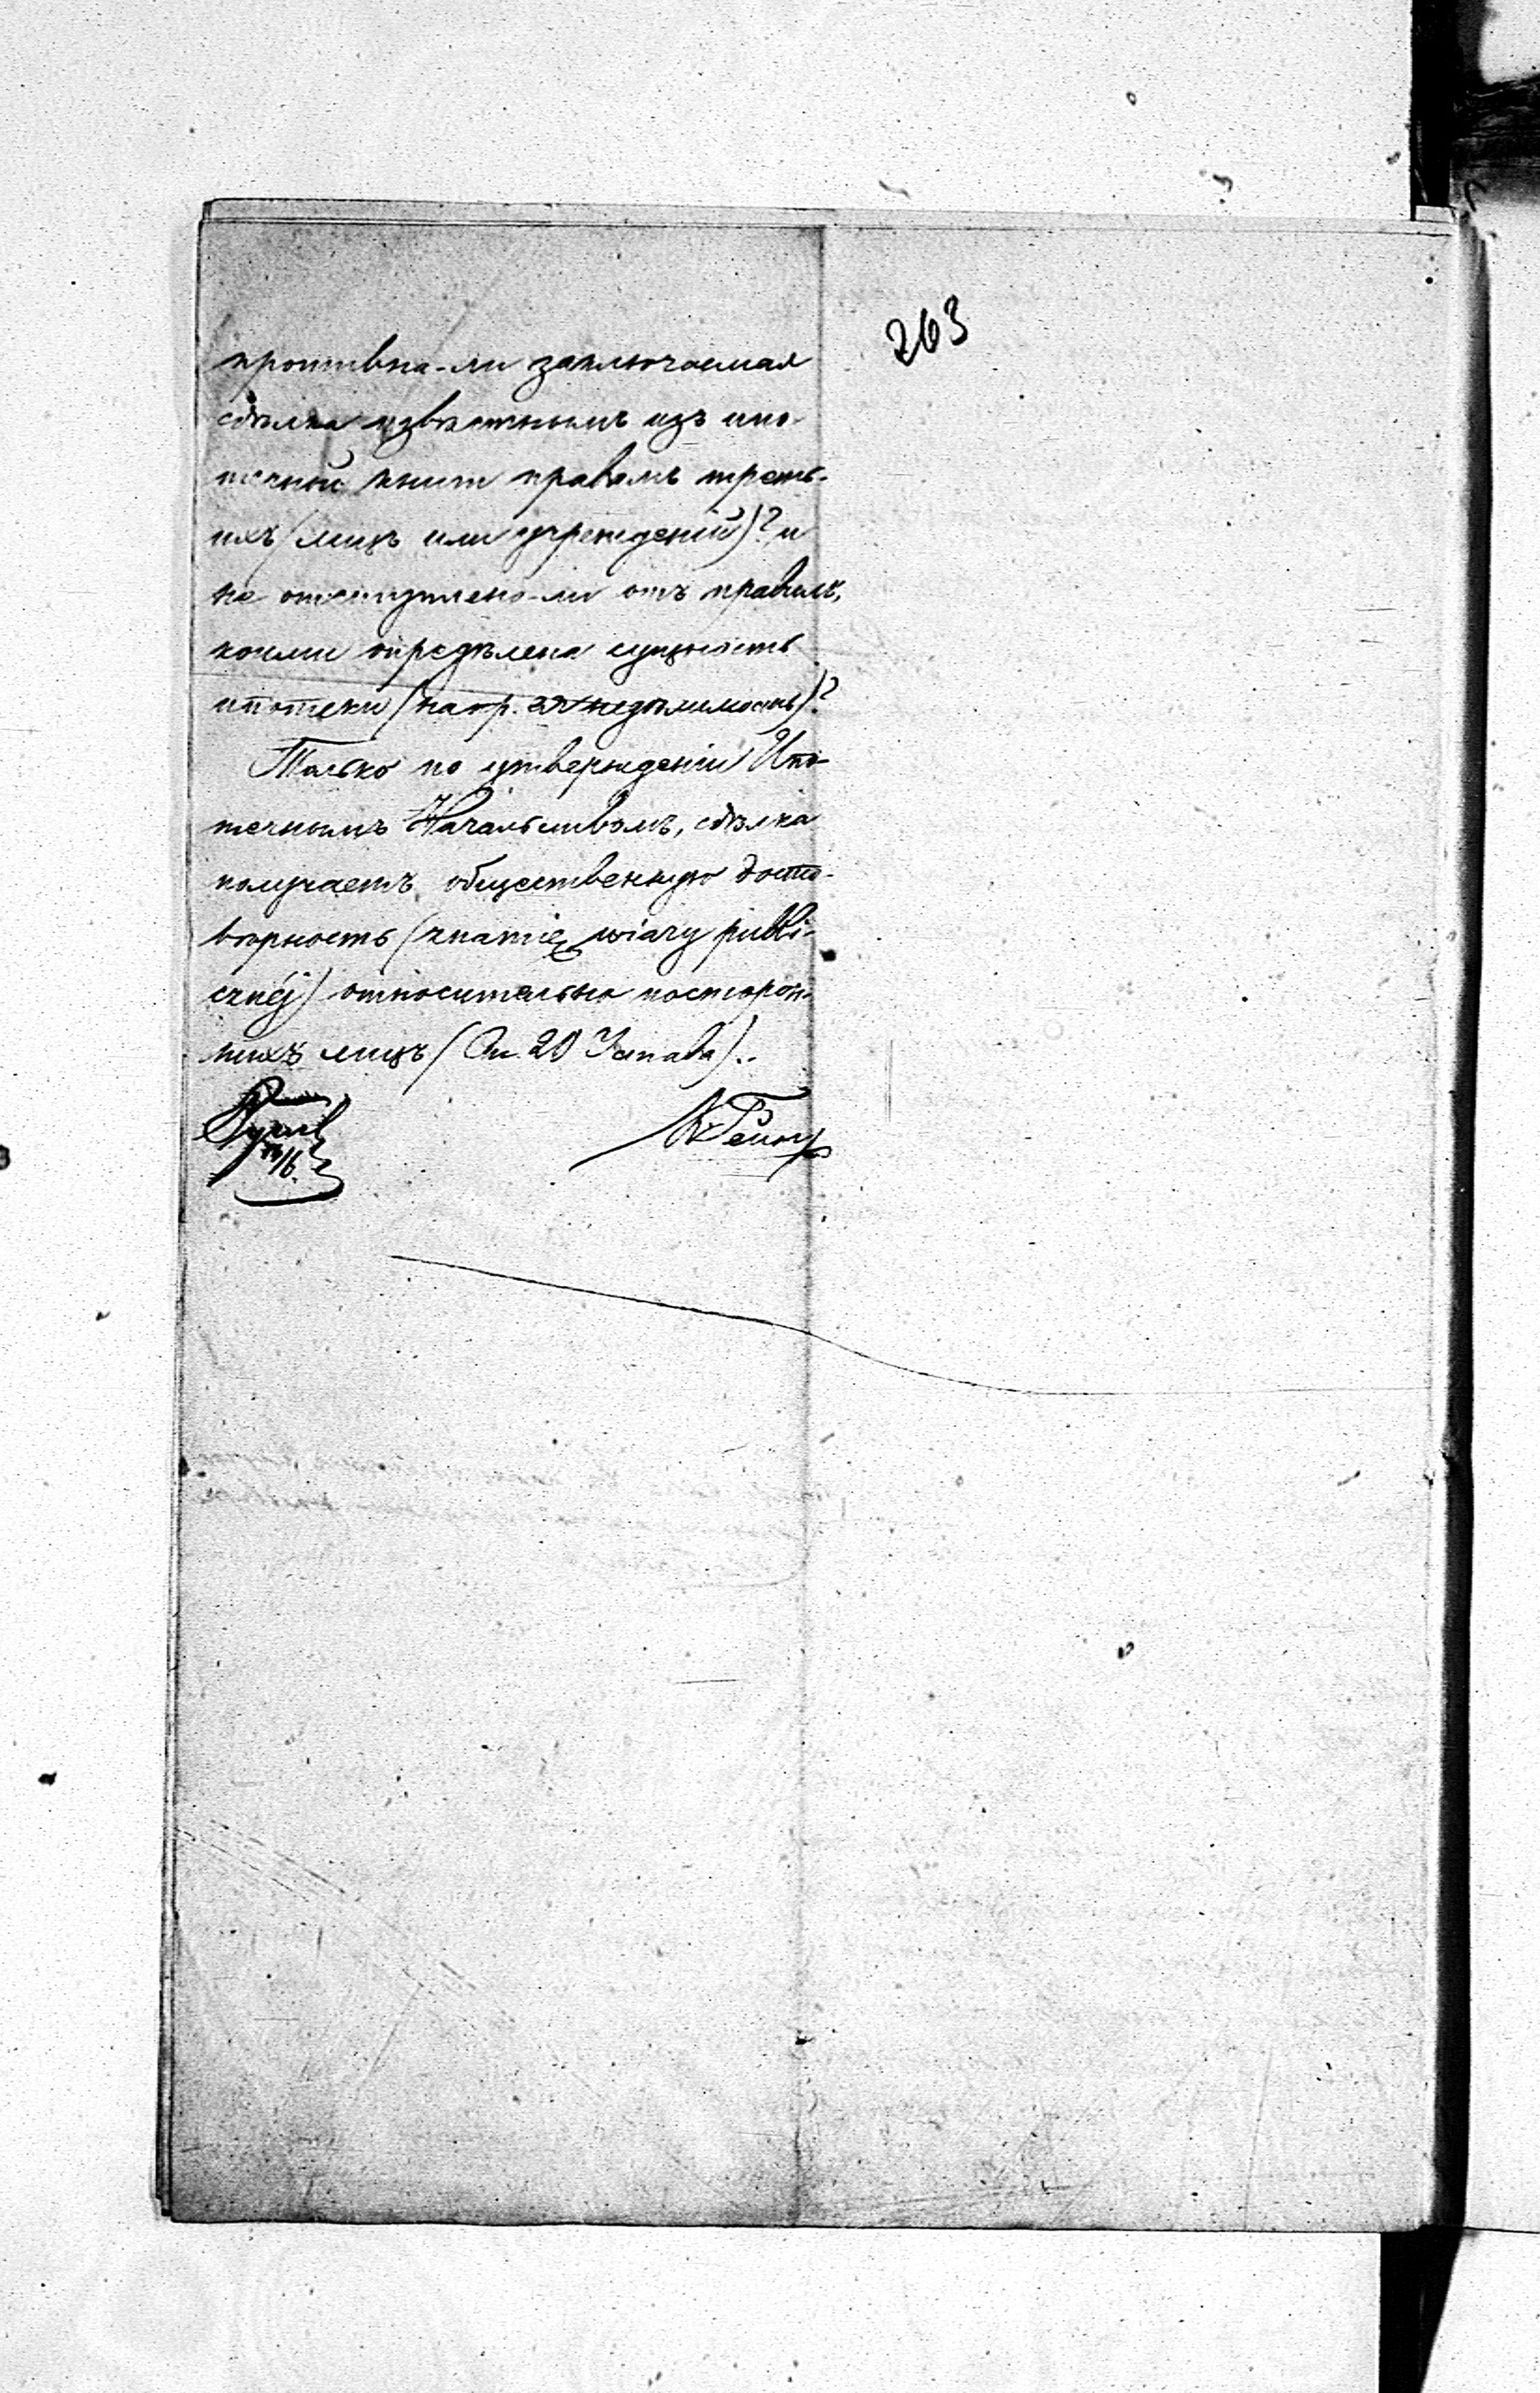 263
противна-ли заключаемая
сдѣлка извѣстнымъ изъ ипо-
течной книги правамъ треть-
ихъ (лицъ или учрежденій)? и
не отступлено-ли отъ правилъ,
коими опредѣлена сущность
ипотеки (напр. недѣлимость)?
Только по утвержденіи Ипо-
течнымъ Начальствомъ, сдѣлка
получаетъ общественную досто-
вѣрность (znamię wiary publi-
cznéj) относительно посторон-
нихъ лицъ (Ст. 20 Устава)..